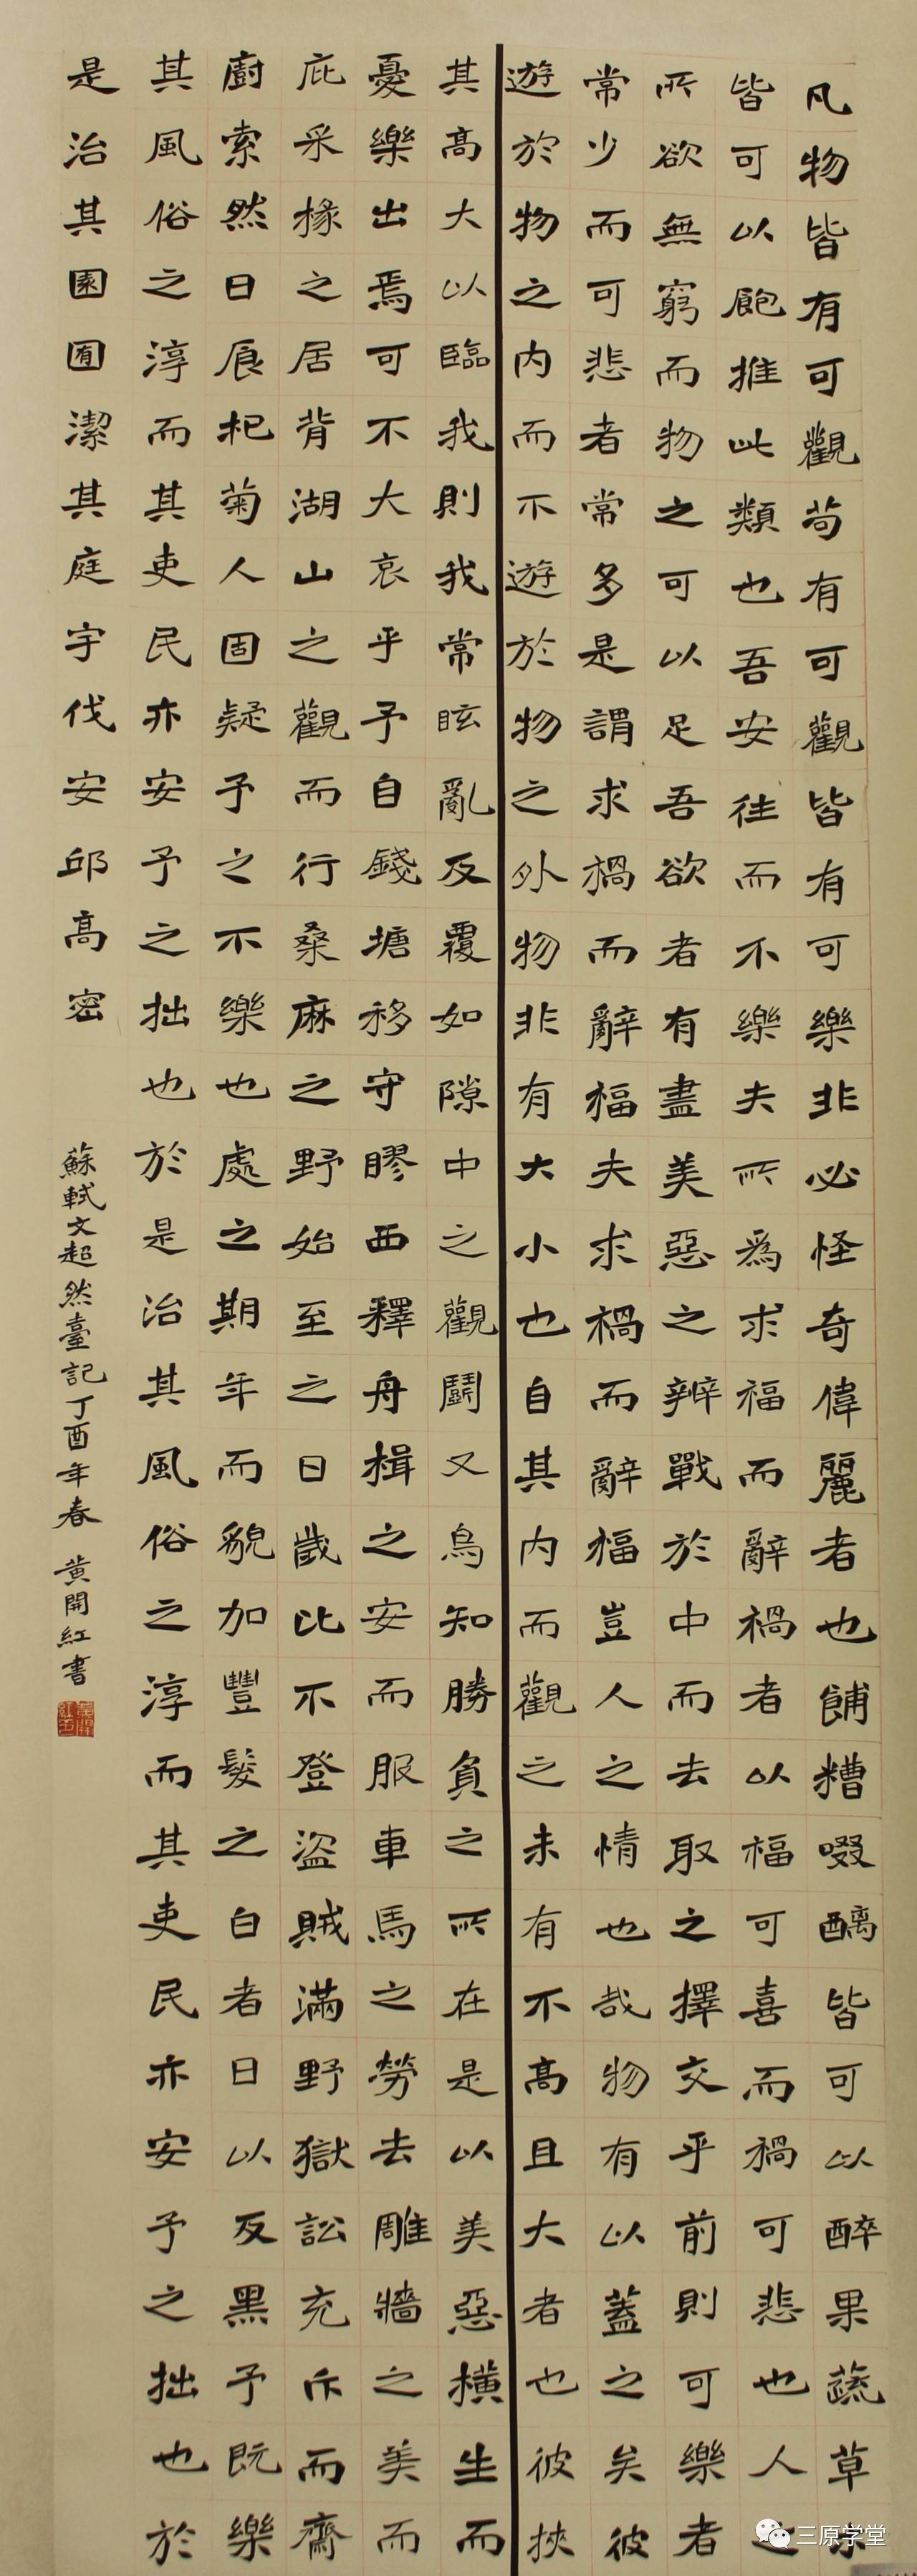 凡物皆有可觀苟有可觀皆有可樂非必怪奇偉麗者也餔糟啜醨皆可以醉果蔬草木
皆可以飽推此類也吾安往而不樂夫所為求福而辭禍者以福可喜而禍可悲也人之
所欲無窮而物之可以足吾欲者有盡美惡之辨戰於中而去取之擇交乎前則可樂者
常少而可悲者常多是謂求禍而辭福夫求禍而辭福豈人之情也哉物有以蓋之矣彼
遊於物之內而不遊於物之外物非有大小也自其內而觀之未有不高且大者也彼挾
其高大以臨我則我常眩亂反覆如隙中之觀鬪又烏知勝負之所在是以美惡橫生而
憂樂出焉可不大哀乎予自錢塘移守膠西釋舟楫之安而服車馬之勞去雕牆之美而
庇采椽之居背湖山之觀而行桑麻之野始至之日歲比不登盜賊滿野獄訟充斥而齋
廚索然日食杞菊人固疑予之不樂也處之期年而貌加豐髮之白者日以反黑予既樂
其風俗之淳而其吏民亦安予之拙也於是治其風俗之淳而其吏民亦安予之拙也於
是治其園囿潔其庭宇伐安邱高密
蘇軾文超然臺記丁酉年春 黃開紅書
三原学堂